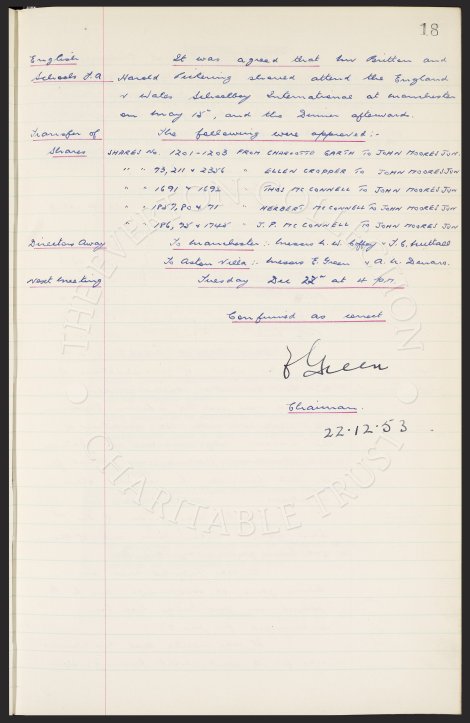 18
English It was agreed that Mr Britton and
Schools F.A Harold Pickering should attend the England
v Wales Schoolboy International at Manchester
on May 15", and the Dinner afterwards.
Transfer of The following were approved:-
Shares SHARES No 1201-1203 FROM CHARLOTTE GARTH TO JOHN MOORES JUN.
" " 73, 211 & 2356 " ELLEN CROPPER TO JOHN MOORES JUN
" " 1691 & 1692 THOS MCCONNELL TO JOHN MOORES JUN
" " 1857, 80 & 71 " HERBERT MCCONNELL TO JOHN MOORES JUN
" " 186, 75 & 1745 " J.P. MCCONNELL TO JOHN MOORES JUN
Directors Away To Manchester:- Messrs N. W. Coffey & T. C. Nuttall
To Aston Villa:- Messrs E Green & A. W. Denaro.
Next Meeting Tuesday Dec 22nd at 4 p.m.
Confirmed as correct
E Green
Chairman.
22.12.53.
THE EVERTON COLLECTION
CHARITABLE TRUST